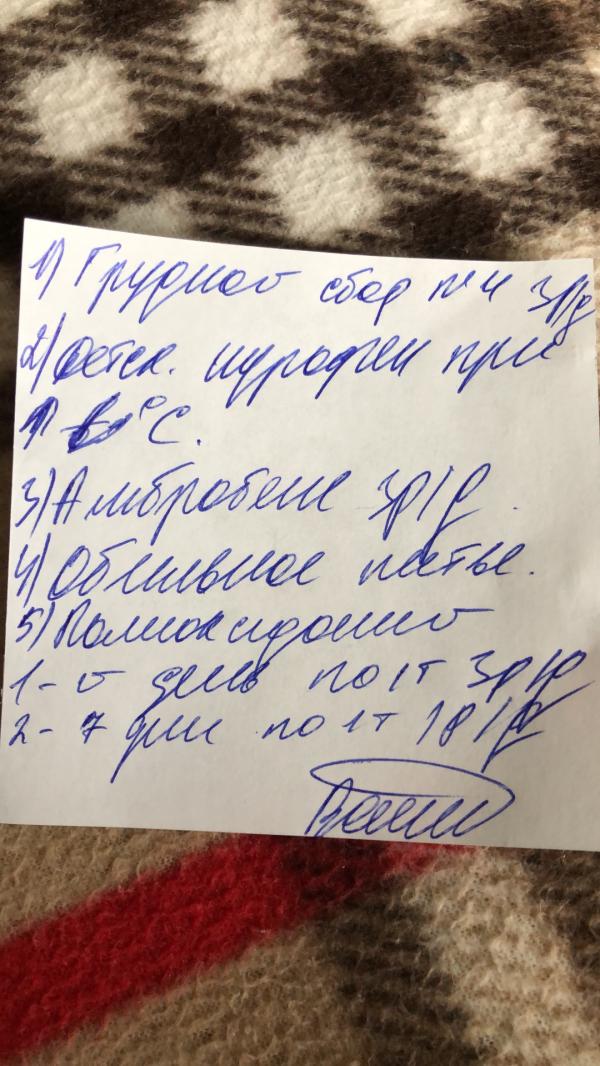 1) Грудной сбор №4 3р/д
2) Детск. нурофен при
↑ t°C.
3) Амбробене 3р/д.
4) Обильное питье.
5) Полиоксидоний
1-й день по 1т 3р/д
2-7 дни по 1т 1р/д